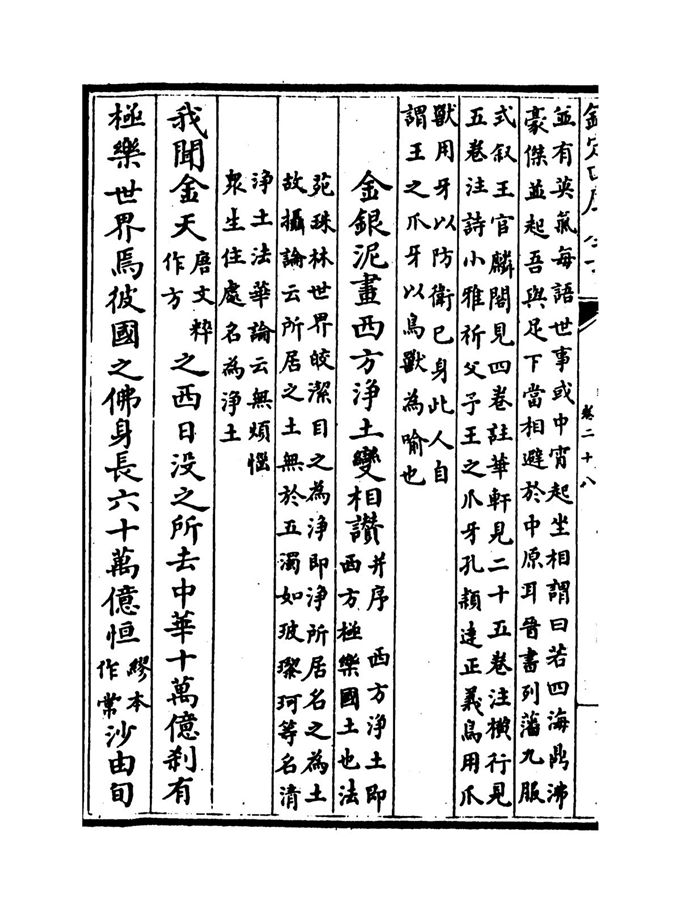 欽定四庫全書
卷二十八
並有英氣每語世事或中宵起坐相謂曰若四海鼎沸
豪傑並起吾與足下當相避於中原耳晉書列藩九服
式叙王官麟閣見四卷註華軒見二十五卷注横行見
五卷注詩小雅祈父予王之爪牙孔穎達正義鳥用爪
獸用牙以防衛已身此人自
謂王之爪牙以鳥獸為喻也
金銀泥畫西方浄土變相讃
并序 西方浄土即
西方極樂國土也法
苑珠林世界皎潔目之為浄即浄所居名之為土
故攝論云所居之土無於五濁如玻瓈珂等名清
浄土法華論云無煩惱
衆生住處名為浄土
我聞金天
唐文粹
作方
之西日没之所去中華十萬億刹有
極樂世界焉彼國之佛身長六十萬億恒
繆本
作常
沙由旬